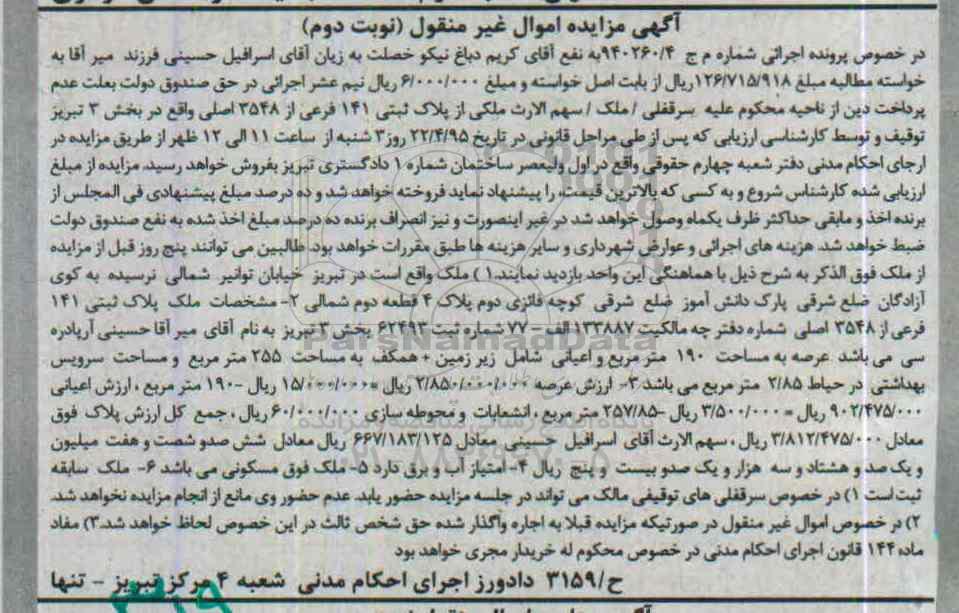 آگهی مزایده اموال غیر منقول (نوبت دوم)
در خصوص پرونده اجرائی شماره م ج ۹۴۰۲۶۰/۴به نفع آقای کریم دباغ نیکو خصلت به زیان آقای اسرافیل حسینی فرزند میر آقا به
خواسته مطالبه مبلغ ۱۲۶/۷۱۵/۹۱۸ریال از بابت اصل خواسته و مبلغ ۶/۰۰۰/۰۰۰ ریال نیم عشر اجرائی در حق صندوق دولت بعلت عدم
پرداخت دین از ناحیه محکوم علیه سرقفلی / ملک / سهم الارث ملکی از پلاک ثبتی ۱۴۱ فرعی از ۳۵۴۸ اصلی واقع در بخش ۳ تبریز
توقیف و توسط کارشناسی ارزیابی که پس از طی مراحل قانونی در تاریخ ۲۲/۴/۹۵ روز۳ شنبه از ساعت ۱۱ الی ۱۲ ظهر از طریق مزایده در
ارجای احکام مدنی دفتر شعبه چهارم حقوقی واقع در اول ولیعصر ساختمان شماره ۱ دادگستری تبریز بفروش خواهد رسید. مزایده از مبلغ
ارزیابی شده کارشناس شروع و به کسی که بالاترین قیمت، را پیشنهاد نماید فروخته خواهد شد و ده درصد مبلغ پیشنهادی فی المجلس از
برنده اخذ و مابقی حداکثر ظرف یکماه وصول خواهد شد در غیر اینصورت و نیز انصراف برنده ده درصد مبلغ اخذ شده به نفع صندوق دولت
ضبط خواهد شد. هزینه های اجرائی و عوارض شهرداری و سایر هزینه ها طبق مقررات خواهد بود. طالبین می توانند پنج روز قبل از مزایده
از ملک فوق الذکر به شرح ذیل با هماهنگی این واحد بازدید نمایند.۱) ملک واقع است در تبریز خیابان توانیر شمالی نرسیده به کوی
آزادگان ضلع شرقی پارک دانش آموز ضلع شرقی کوچه فائزی دوم پلاک ۴ قطعه دوم شمالی ۲- مشخصات ملک پلاک ثبتی ۱۴۱
فرعی از ۳۵۴۸ اصلی شماره دفتر چه مالکیت ۱۳۳۸۸۷ الف -۷۷ شماره ثبت ۶۲۴۹۳ بخش ۳ تبریز به نام آقای میر آقا حسینی آرپادره
سی می باشد عرصه به مساحت ۱۹۰ متر مربع و اعیانی شامل زیر زمین + همکف به مساحت ۲۵۵ متر مربع و مساحت سرویس
بهداشتی در حیاط ۲/۸۵ متر مربع می باشد ۳- ارزش عرصه ۲/۸۵۰/۰۰۰/۰۰۰ ریال =۱۵/۰۰۰/۰۰۰ ریال -۱۹۰ متر مربع ، ارزش اعیانی
۹۰۲/۴۷۵/۰۰۰ ریال = ۳/۵۰۰/۰۰۰ ریال -۲۵۷/۸۵ متر مربع ، انشعابات و محوطه سازی ۶۰/۰۰۰/۰۰۰ ریال ، جمع کل ارزش پلاک فوق
معادل ۳/۸۱۲/۴۷۵/۰۰۰ ریال ، سهم الارث آقای اسرافیل حسینی معادل ۶۶۷/۱۸۳/۱۲۵ ریال معادل شش صدو شصت و هفت میلیون
و یک صد و هشتاد و سه هزار و یک صدو بیست و پنج ریال ۴- امتیاز آب و برق دارد ۵- ملک فوق مسکونی می باشد ۶- ملک سابقه
ثبت است ۱) در خصوص سرقفلی های توقیفی مالک می تواند در جلسه مزایده حضور یابد. عدم حضور وی مانع از انجام مزایده نخواهد شد.
۲) در خصوص اموال غیر منقول در صورتیکه مزایده قبلا به اجاره واگذار شده حق شخص ثالث در این خصوص لحاظ خواهد شد.۳) مفاد
ماده ۱۴۴ قانون اجرای احکام مدنی در خصوص محکوم له خریدار مجری خواهد بود
ح/۳۱۵۹ دادورز اجرای احکام مدنی شعبه ۴ مرکز تبریز - تنها
ParsNamadData